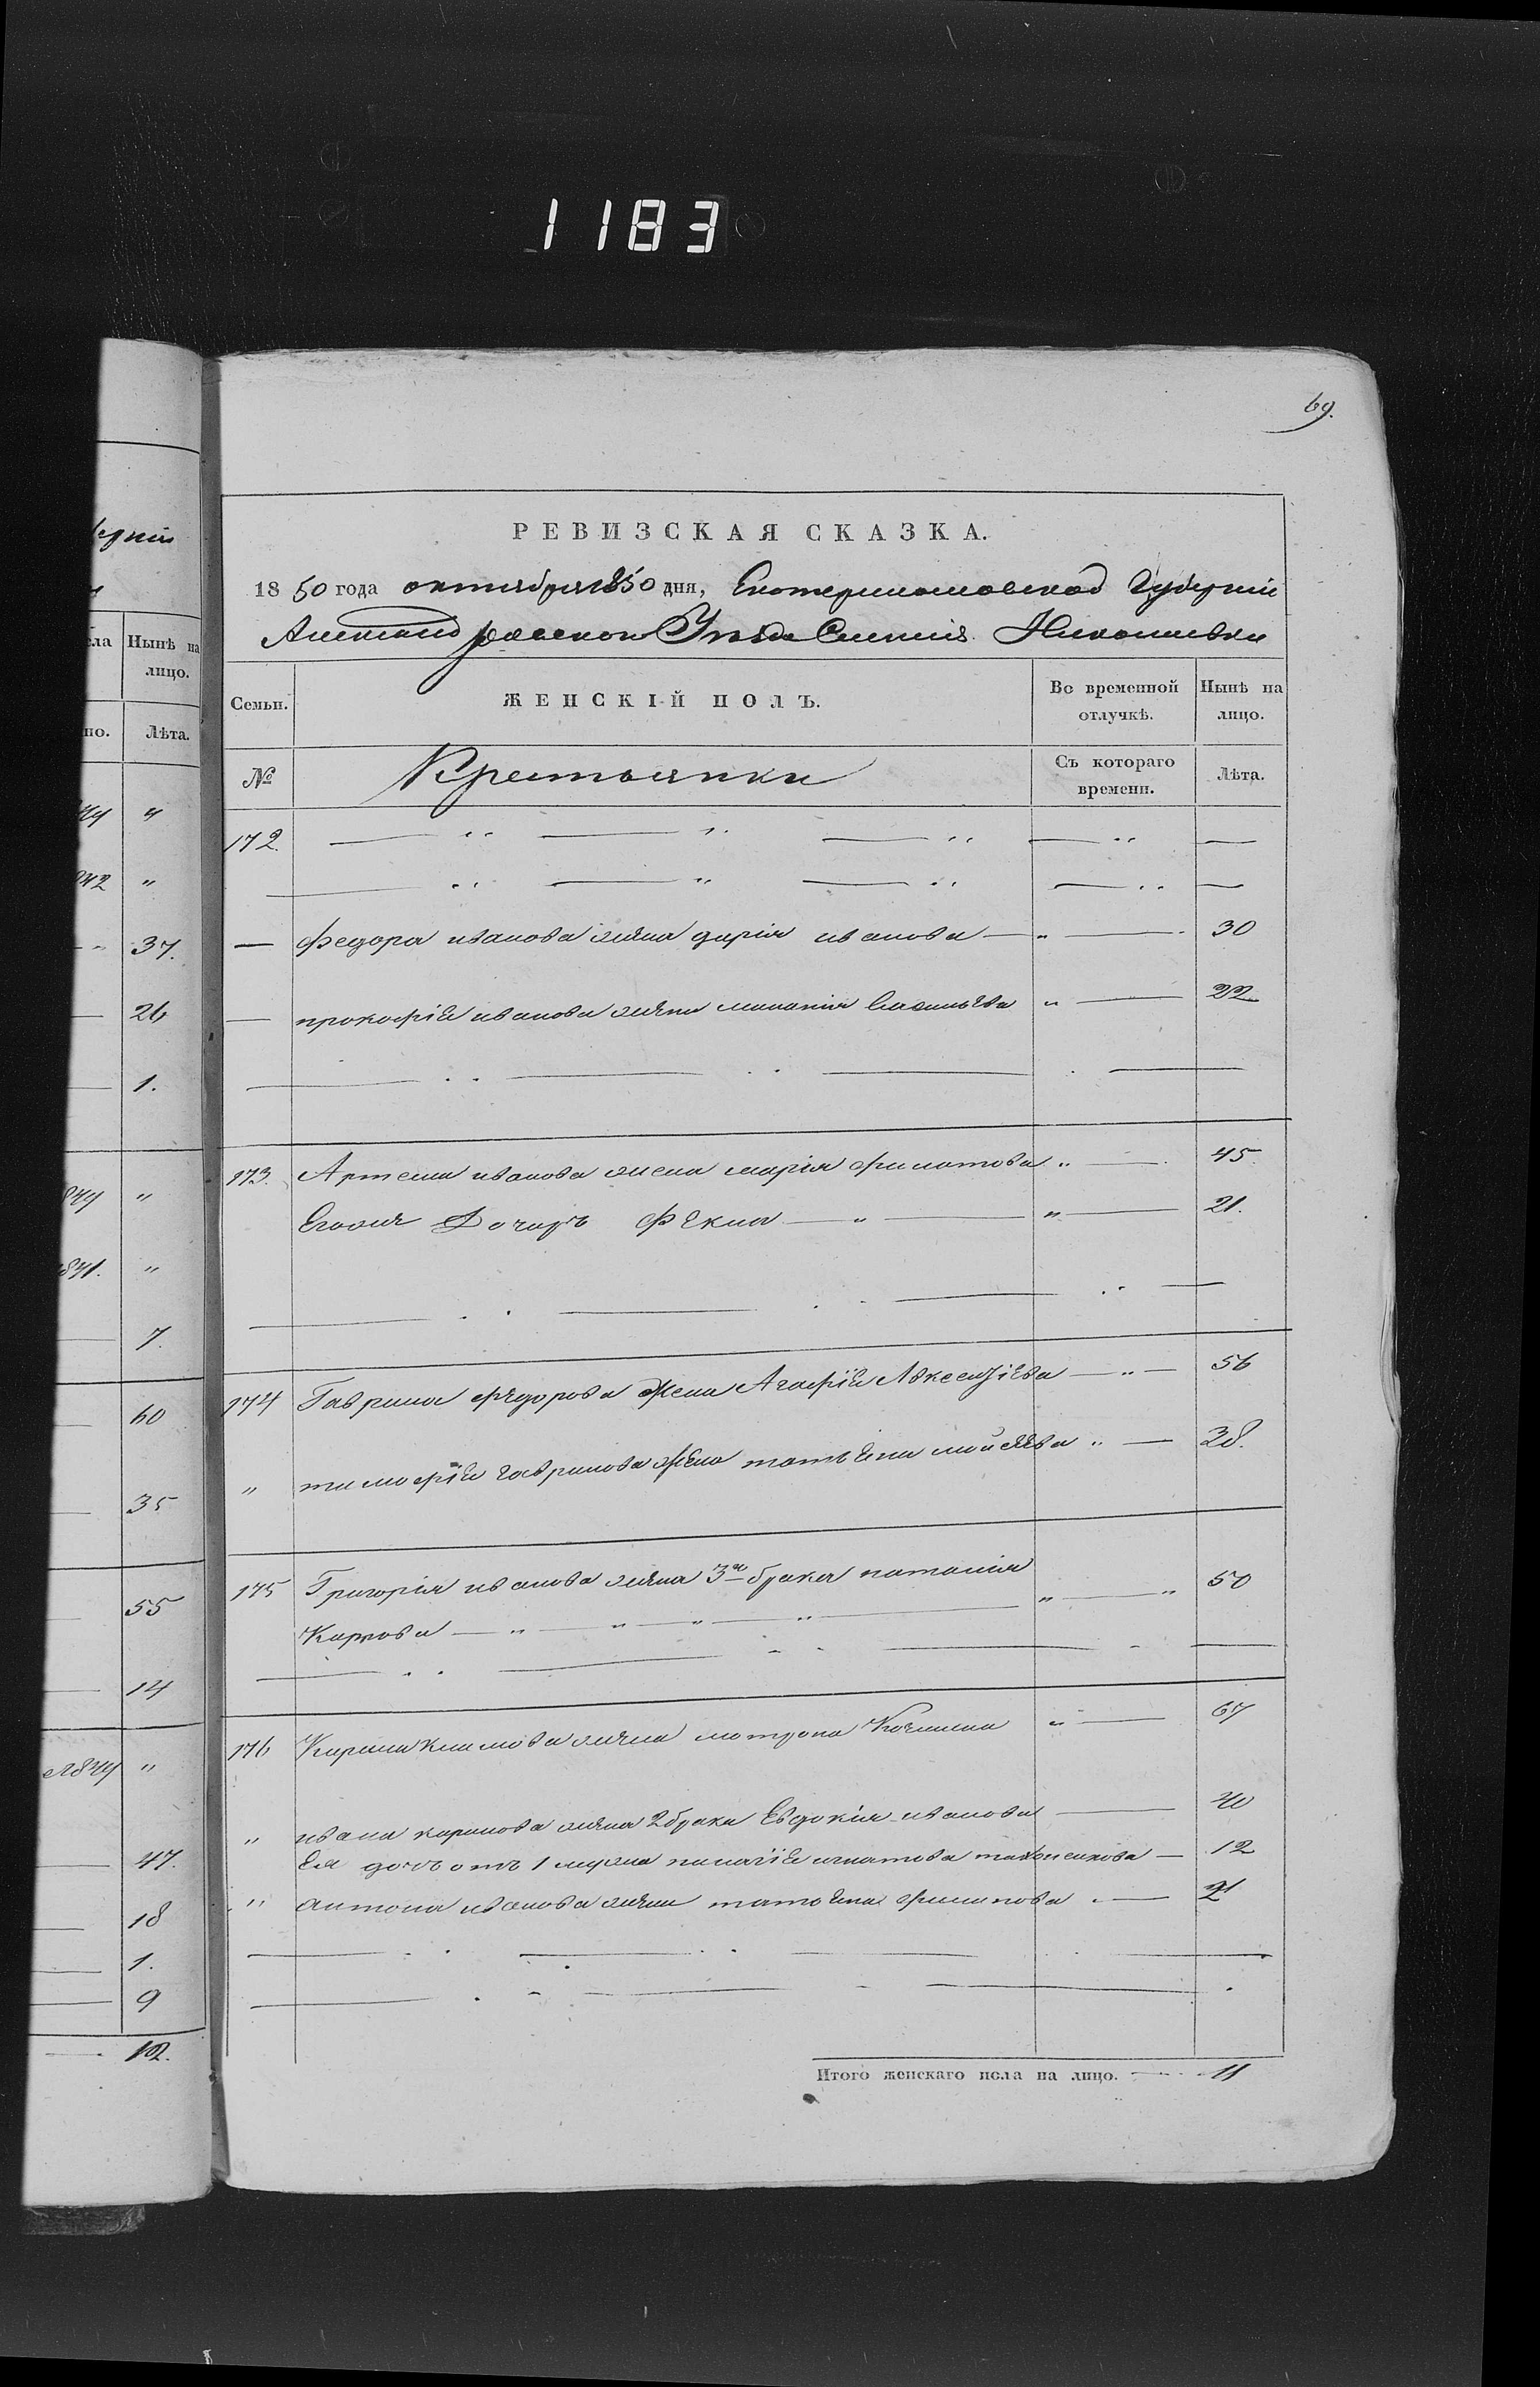 1183
69.
РЕВИЗСКАЯ СКАЗКА.
1850 года октября 1850 дня, Екатеринославской Губернии
Александровского Уезда Селения Николаевки
Семьи.
ЖЕНСКІЙ ПОЛЪ.
Во временной отлучкѣ.
Нынѣ на лицо.
№
Крестьянки
Съ котораго времени.
Лѣта.
172.
Федора иванова жена дария иванова 30
прокофия иванова жена малания васильева 22
173. Артема иванова жена мария филатова 45
Егожя Дочерь Фекла 21.
174 Гаврила федорова жена Агафия Авксентиева 56
" тимофия гаврилова жена татьяна мойсеева " 38.
175 Григория иванова жена 3го брака наталия
Карпова 50
176 Кирила климова жена матрона 67
" ивана кирилова жена 2 брака Евдокия иванова 40
Ея дочь отъ 1 мужа пилагия игнатова 12
" антона иванова жена татьяна филипова 21
Итого женскаго пола на лицо. 11
Нынѣ на лицо.
Лѣта.
"
"
37.
26
1.
"
"
7.
60
35
55
14
"
47.
18
1.
9
12.